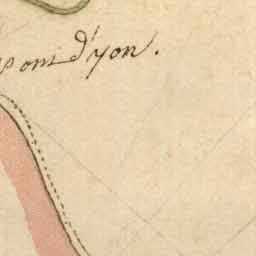 pont d'yon.